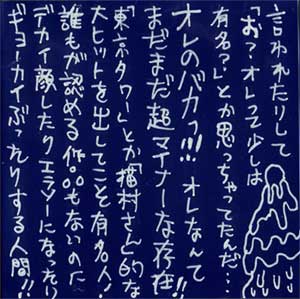 言われたりして
「お？オレって少しは
有名？」とか思っちゃってたんだ…
オレのバカッ!!! オレなんて
まだまだ超マイナーな存在!!
「東京タワー」とか「猫村さん」的な
大ヒットを出してこそ有名人！
誰もが認める作品もないのに
デカイ顔したりエラソーになったり
ギョーカイぶったりする人間!!